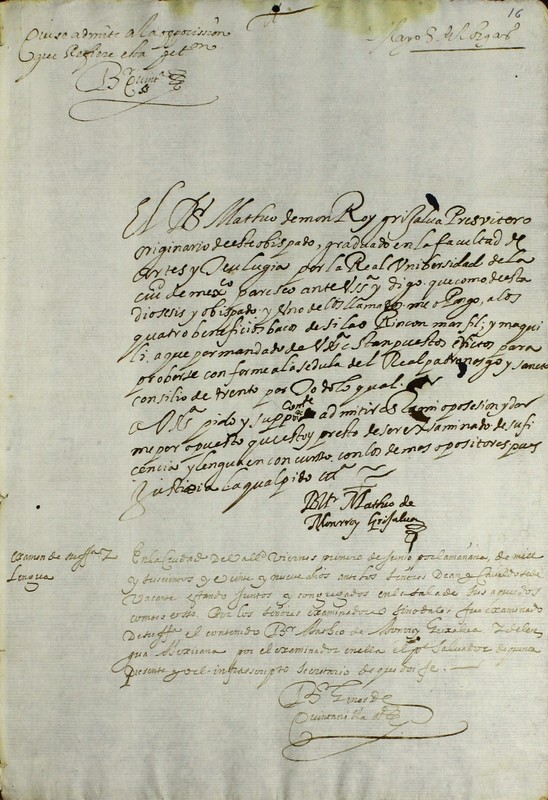 16
que Refiere esta peton
El Br Matheo de monRoy grisalva Presvitero
originario de este obispado, graduado en la facultad de
Artes y Teulugia por la Real Unibersidad de la
ciud de mexco paresco ante Vssa y digo, que como de esta
diosesis y obispado y Uno de los llamados me opongo, a los
quatro beneficios bacos de silao Rincon marfil; y maqui
li, a que por mandado de Vssa estan puestos edictos para
proberse conforme a la sedula del Real patronasgo y santo
consilio de trento por todo lo qual.
a Vssa pido y suppco admitirme la mi oposesion y dar
me por opuesto que estoy presto de ser exsaminado de sufi
ciencia y lengua en concurso con los demas opositores pues
Justicia la qual pido etta
Bllr Matheo de
Monrroy Grisalva
Examen de suffa y
Lengua
En la Ciudad de Valld Viernes primero de Junio por la mañana, de mill
y seiscientos y veinte y nueve años ante los señores Dean y Cavildo sede
Vacante estando Juntos y congregados en la sala de sus acuerdos
como es costre Por los señores examinadores sinodales fue examinado
de suffa el contenido Br Matheo de Monroy Grisalva y de len
gua Mexicana por el examinador en ella el Pe Salvador de
Presente yo el infrascripto secretario de que doi fe.
Br Gines de
Quintanilla